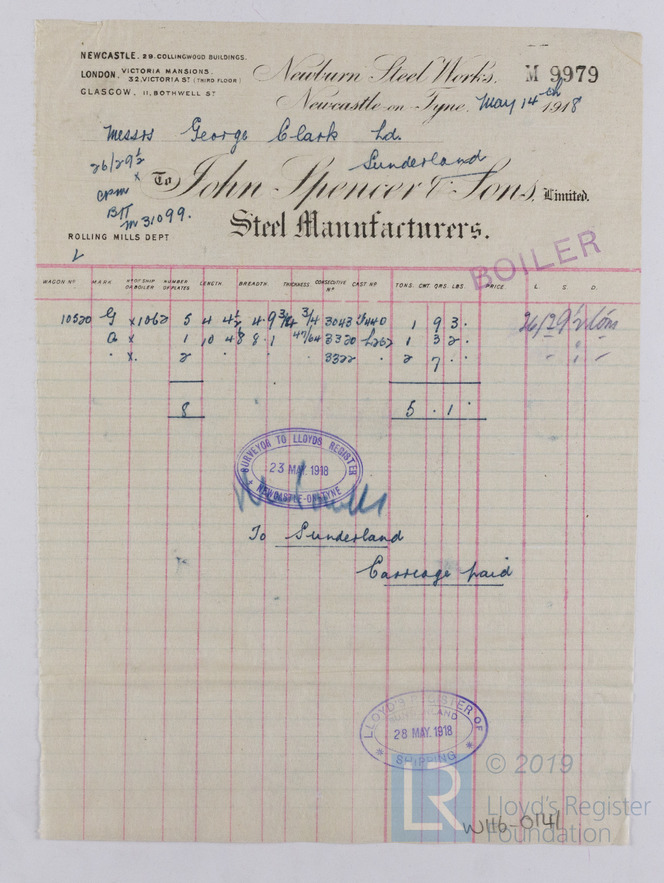 NEWCASTLE, 29. COLLINGWOOD BUILDINGS.
LONDON, VICTORIA MANSIONS, 32, VICTORIA ST (THIRD FLOOR)
GLASCOW, 11, BOTHWELL ST
Newburn Steel Works,
M 9979
Newcastle-on-Tyne, May 14th 1918
Messrs George Clark Ld.
Sunderland
26/29½
x
BTT
M 31099.
To John Spencer & Sons, Limited.
Steel Manufacturers.
ROLLING MILLS DEPT
BOILER
WAGON No MARK No OF SHIP OR BOILER NUMBER OF PLATES LENGTH BREADTH THICKNESS CONSECUTIVE No CAST No TONS. CWT. QRS. LBS. PRICE L. S. D.
10520 G x1062 5 4 4½ 4.9 3/4 3043 1 9 3 .
x 1 10 4 8 8.1 47/64 3320 1 3 2 .
" x. 2 " " " 3322 2 7 " "
8 5 . 1 "
SURVEYOR TO LLOYDS REGISTER
23 MAY. 1918
NEWCASTLE-ON-TYNE
To Sunderland
Carriage paid
LLOYD'S REGISTER OF
SUNDERLAND
28 MAY. 1918
* SHIPPING *
LR
© 2019
Lloyd's Register
Foundation
W116-0141